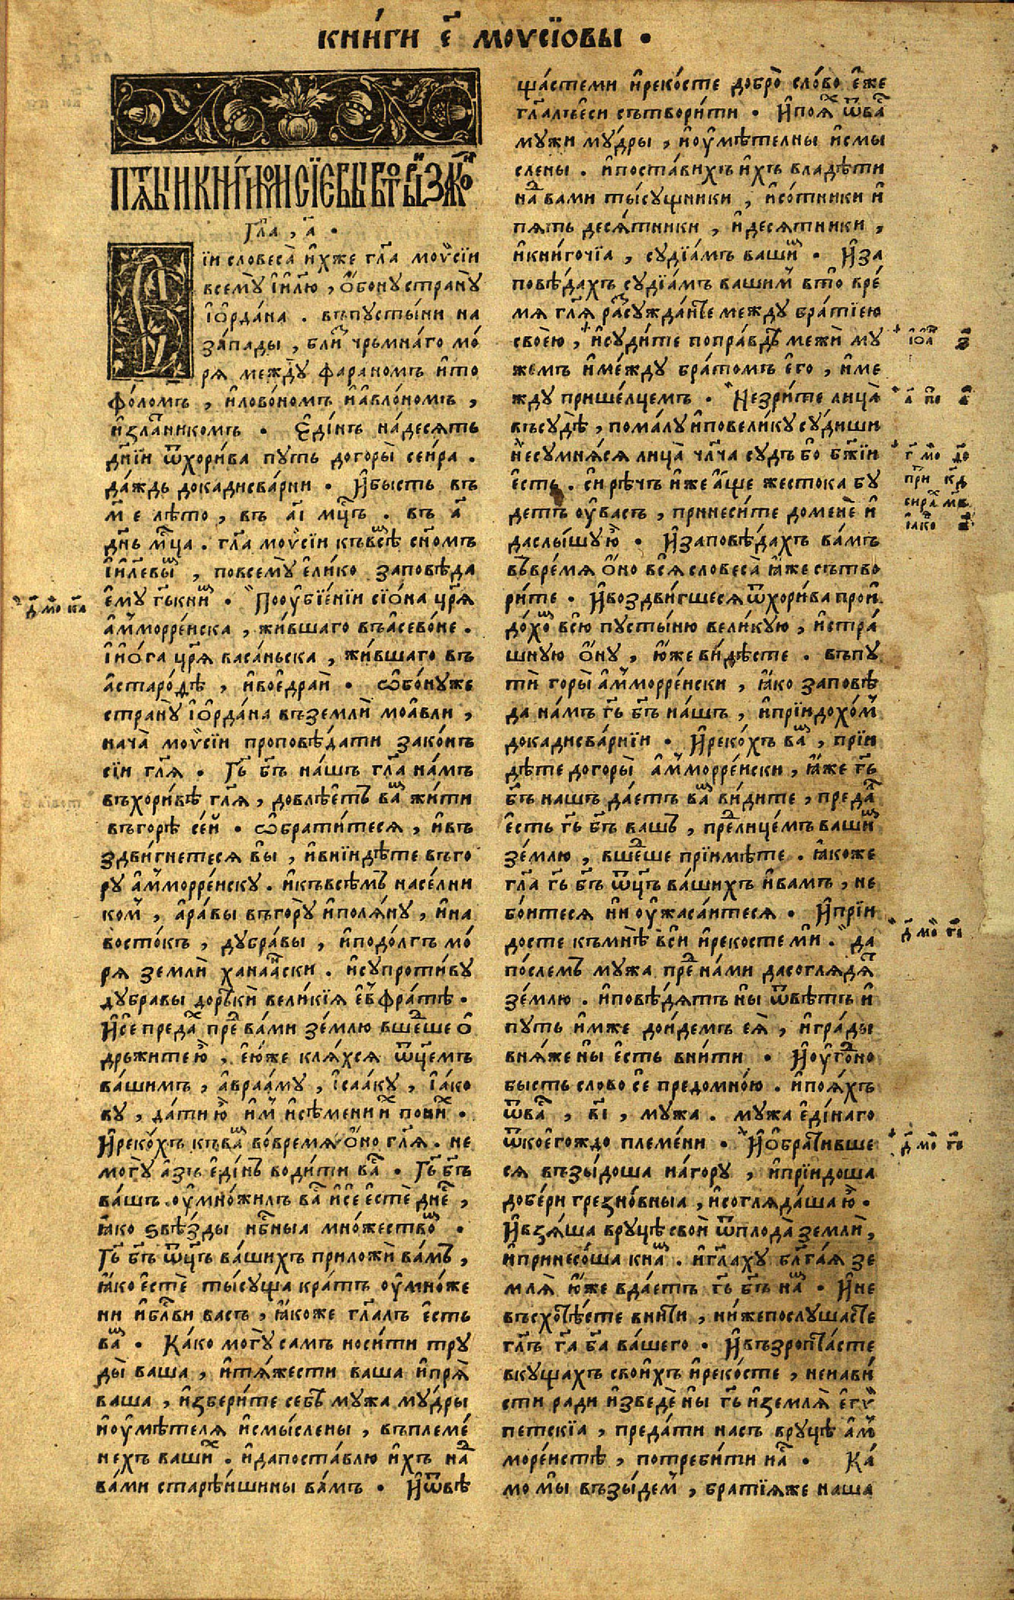 КНИ́ГИ Є҃ МОѴСЇОВЫ •
ПѦТЫѦ КНИГИ МОИСЇЕВЫ ВТОРЫЙ ЗАКО́Н
Гла̀, а҃ •
Сїи словеса̀ и҆́хже гл҃а моѷсїи
всемꙋ̀ і҆и҃лю, ѻ҆бонꙋстранꙋ
і҆ѻ҆рда́на . въпꙋсты́ни на
за́пады, бли́з чръмна́го мо́
ря междꙋ̀ фараномъ и҆то
фо́ломъ, и҆ловономъ и҆а҆вло́номъ,
и҆златникомъ • Є҆ди́нъ на́десять
дн҃їи ѿхори́ва пꙋть догоры̀ сеи́ра .
да́ждь докадисва́рни • И҆бысть въ
м҃ е лѣто, въ а҃і мцⷭ҇ъ . въ а҃
дн҃ь мцⷭ҇а . гл҃а моѷсїи къвсѣ̑ сн҃омъ
і҆и҃левы̑, повсемꙋ̀ є҆ли́ко заповѣда
є҆мꙋ гь҃кни̑ • Поᲂу҆бїе́нїи сїѡ́на цр҃ѧ
а҆ммᲂрре́йска, жи́вшаго въасевѡ́не .
і҆и҆ѻ́га цр҃ѧ васа́ньска, жи́вшаго въ
а҆старо́ѳѣ, и҆вое҆дра́и • ѡ҆бо́нꙋже
странꙋ̀ і҆ѻ҆рда́на въземлѝ моа́вли,
нача̀ моѷсїи проповѣ́дати зако́нъ
сїи гл҃ѧ • Гь҃ бг҃ъ на́шъ гл҃а на́мъ
въхори́вѣ гл҃ѧ, довлѣ́етъ ва̑ жи́ти
въгорѣ̀ се́й • ѡ҆брати́тесѧ, и҆въ
здви́гнетесѧ вы̀, и҆вни́идѣте въго
рꙋ а҆ммᲂрре́йскꙋ . и҆къвсѣ́мъ насе́лни
ком̑, а҆ра́вы въгорꙋ и҆полѧ́нꙋ, и҆на
восто́къ, дꙋбра́вы, и҆подо́лгъ мо́
рѧ землѝ ханаа́нски . и҆сꙋпроти́вꙋ
дꙋбравы дорѣкѝ вели́кїѧ е҆ѵфра́тѣ .
И҆се предⷶ пре вами зе́млю вше́дше ѻ҆
држи́те ю҆̀, е҆ю́же клѧхсѧ ѿц҃емъ
ва́шимъ, а҆враа́мꙋ, і҆саа́кꙋ, і҆а́ко
вꙋ, да́ти ю҆̀ и҆м̑ и҆сѣ́мени и҆̑ пони̑х •
И҆реко́хъ къва̑ во́время ѻ҆́но гл҃ѧ . не
могꙋ̀ а҆́зъ є҆ди́нъ води́ти ва̑ • Гь҃ бг҃ъ
ва́шъ ᲂу҆мно́жилъ ва̑ и҆се е҆стѐ дне́,
ꙗ҆ко ѕвѣ́зды нб҃ныа мно́жествѡ̑ •
Гь҃ бг҃ъ ѿц҃ъ ва́шихъ приложѝ ва́мъ,
ꙗ҆́ко е҆стѐ ты́сꙋща кра́тъ ᲂу҆мно́же
ни и҆бл҃ви васъ, ꙗ҆́коже гл҃алъ е҆сть
ва̑ • Ка́ко могꙋ̀ са́мъ носи́ти трꙋ
ды̀ ваша, и҆тѧ́жести ваша и҆прѧ̀
ваша, и҆збери́те себѣ мꙋжа мꙋ́дры
и҆ᲂу҆мѣ́телѧ и҆смы́слены, въплеме́
нехъ ваши̑х . и҆да поста́влю и҆́хъ на̑
ва́ми старѣ́ишины ва́мъ • И҆ѿвѣ
ща́стеми и҆реко́сте добро̀ сло́во є҆́же
гл҃алъе́си сътвори́ти • И҆поѧ̑ ѿва̑
мꙋжи мꙋ́дры, и҆ᲂу҆мѣ́телны и҆смы
слены . и҆поста́вихъ и҆́хъ владѣти
на̑ вами ты́сꙋщники, и҆со́тники и҆
пѧть десѧ́тники, и҆десѧтники,
и҆кни́гочїа, сꙋдїа́мъ ваши̑ • И҆за
повѣ́дахъ сꙋдїа́мъ вашим̑ вто̀ вре́
мѧ гл҃ѧ расꙋжда́ите междꙋ бра́тїею
свое́ю, и҆сꙋди́те поправдѣ̀ межѝ мꙋ
жемъ и҆ме́ждꙋ бра́томъ е҆го̀, и҆ме
ждꙋ прише́лцемъ • Незри́те лица̀
въсꙋдѣ̀, пома́лꙋ и҆повели́кꙋ сꙋ́диши
и҆несꙋмнѧ́сѧ лица̀ чл҃ча сꙋдъ бо бж҃їи
е҆́сть . си рѣчъ и҆́же а҆́ще жестока бꙋ
детъ ᲂу҆ва́съ, принеси́те доменѐ и҆
даслы́шꙋ ю҆̀ • И҆заповѣ́дахъ ва́мъ
въвре́мѧ ѻ҆́но всѧ̀ словеса̀ ꙗ҆́же сътво
ри́те • И҆воздви́гшесѧ ѿхори́ва прои́
до́хѡ̑ всю̀ пꙋсты́ню вели́кꙋю, и҆стра́
шнꙋю ѻ҆́нꙋ, ю҆́же ви́дѣсте . въпꙋ
тѝ горы̀ а҆ммᲂрре́йски, ꙗ҆́ко заповѣ
да на́мъ гь҃ бг҃ъ на́шъ, и҆прїидохо́м
докадисва́рнїи • И҆реко́хъ ва̑, прїи
дѣте догоры̀ а҆ммᲂрре́йски, ꙗ҆́же гь҃
бг҃ъ на́шъ да́етъ ва̑ ви́дите, преда̑
е҆́сть гь҃ бг҃ъ ва́шъ, прелице́мъ ваши̑
зе́млю, вше́дше прїимѣ́те . ꙗ҆́коже
гл҃а гь҃ бг҃ъ ѿц҃ъ ва́шихъ и҆ва́мъ, не
бо́итесѧ ни ᲂу҆жаса́итесѧ • И҆прїи
досте къмнѣ̀ всѝ и҆рекосте мѝ . да
по́слемъ мꙋжа пре на́ми дасоглѧдⷶ
зе́млю . и҆повѣ́дѧтъ ны ѿвѣ́тъ и҆
пꙋть и҆́мже до́йдемъ е҆ѧ̀, и҆гра́ды
внѧ́же ны е҆́сть вни́ти • И҆ᲂу҆го́дно
бысть слово сѐ предомно́ю . и҆поѧ́хъ
ѿва̑, в҃і, мꙋжа . мꙋжа є҆ди́наго
ѿкое́гождо пле́мени • И҆ѻ҆брати́вше
сѧ възы́доша на́горꙋ, и҆прїидоша
добе́ри грезно́вныа, и҆соглѧда́ша ю҆̀ .
И҆взѧ́ша врꙋцѣ свои̑ ѿплода̀ землѝ,
и҆принесо́ша кна̑ . и҆гл҃ахꙋ бл҃га́ѧ зе
млѧ̀ ю҆́же вда́етъ гь҃ бг҃ъ на̑ • И҆не
въсхотѣ́сте вни́ти, ни́жепослꙋшасте
гл҃ъ га҃ ба҃ ва́шего • И҆възропта́сте
вкꙋщахъ свои́хъ и҆реко́сте, ненави
сти ради и҆зведѐ ны гь҃ и҆землѧ̀ е҆гѵ
петскїа, преда́ти насъ врꙋцѣ а҆м̑
море́истѣ, потреби́ти на̑ • Ка́
мо мы̀ възы́дем, бра́тїѧже наша
д҃ мо҃ к҃а
і҆ѻ҃а з҃
г҃ мо҃
при к҃д
сира́ м҃в
і҆ако
д҃ мо҃ г҃і
д҃ мо҃ г҃і